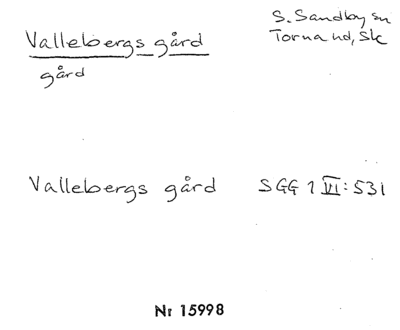 Vallebergs gård
gård
S. Sandby sn
Torna hd, Sk
Vallebergs gård SGG 1 VI:531
Nr 15998